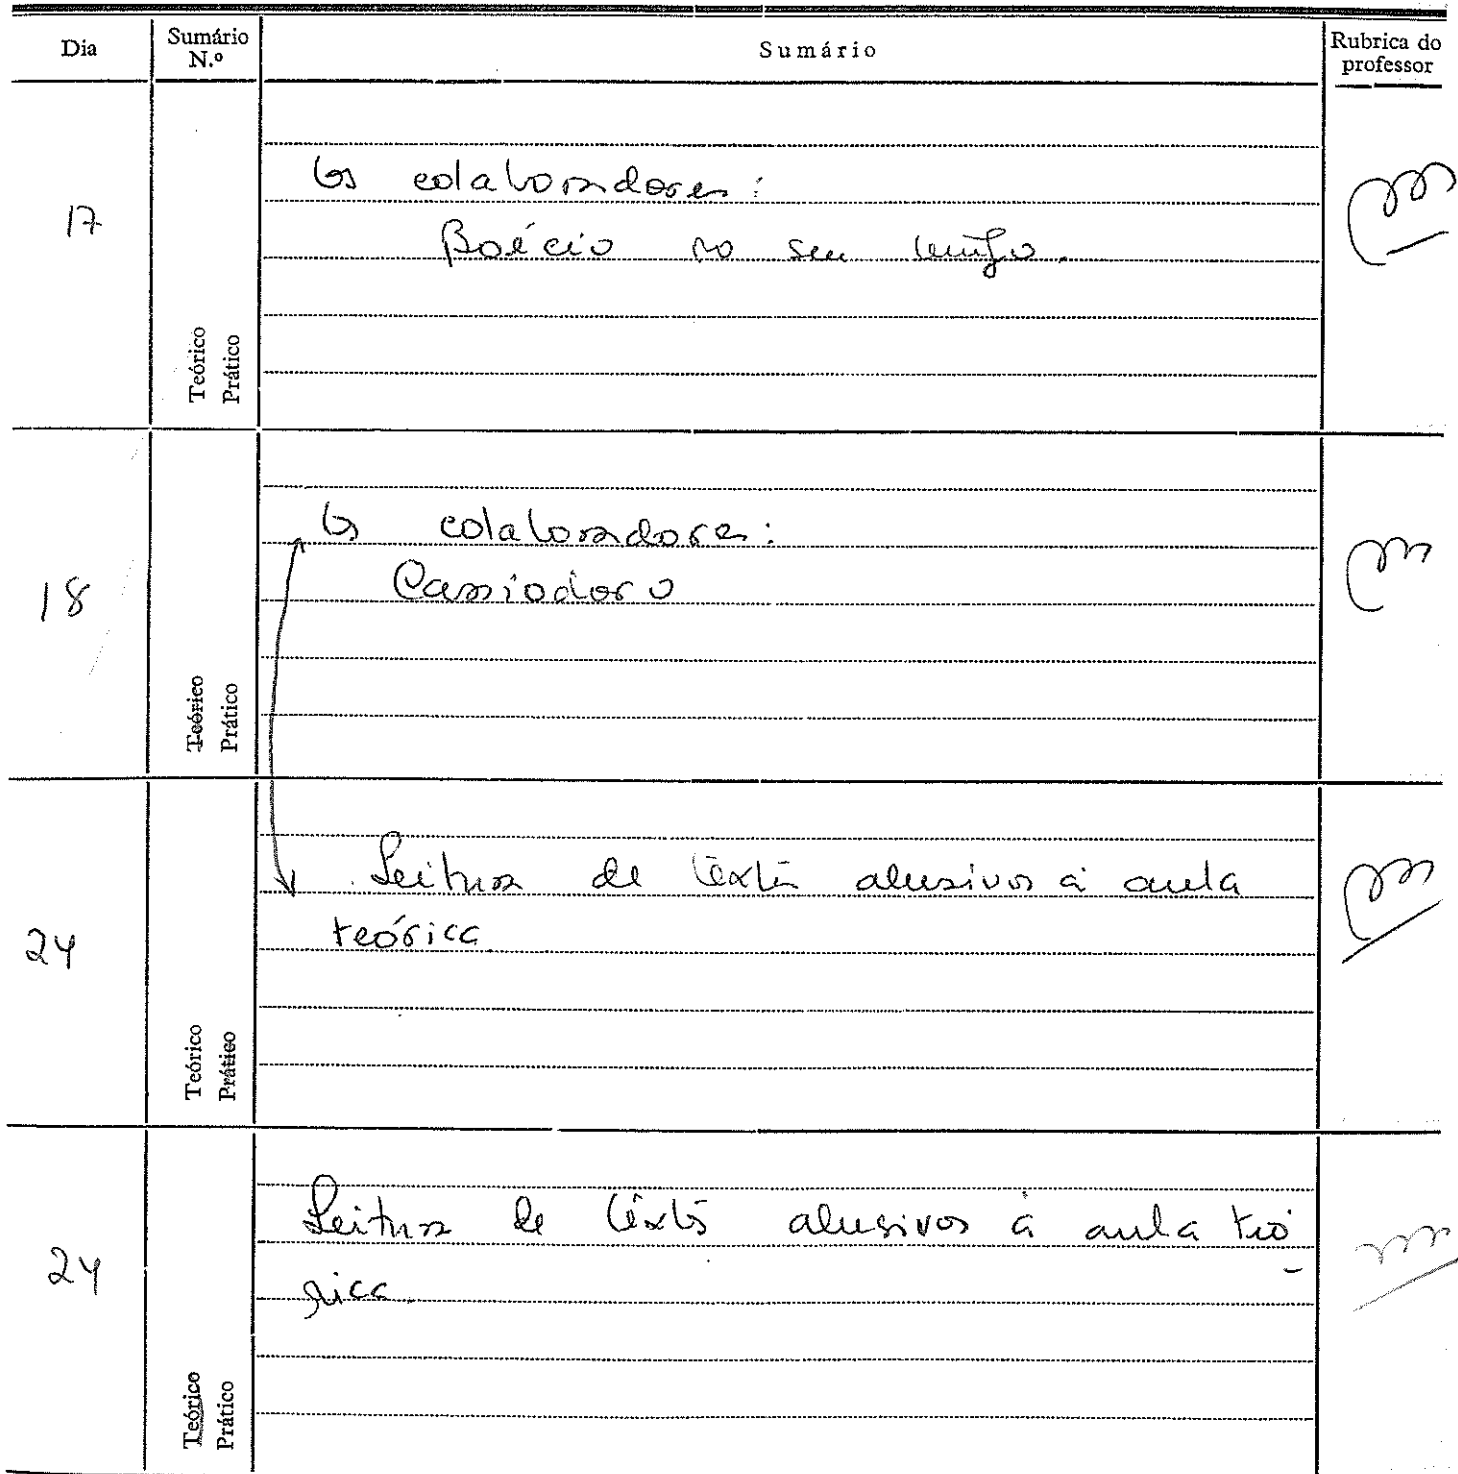 Dia
Sumário N.º
Sumário
Rubrica do professor
17
Teórico
Prático
Os colaboradores:
Boécio no seu tempo.
18
Teórico
Prático
Os colaboradores:
Cassiodoro
24
Teórico
Prático
Leitura de textos alusivos à aula
teórica
24
Teórico
Prático
Leitura de textos alusivos à aula teó-
rica.